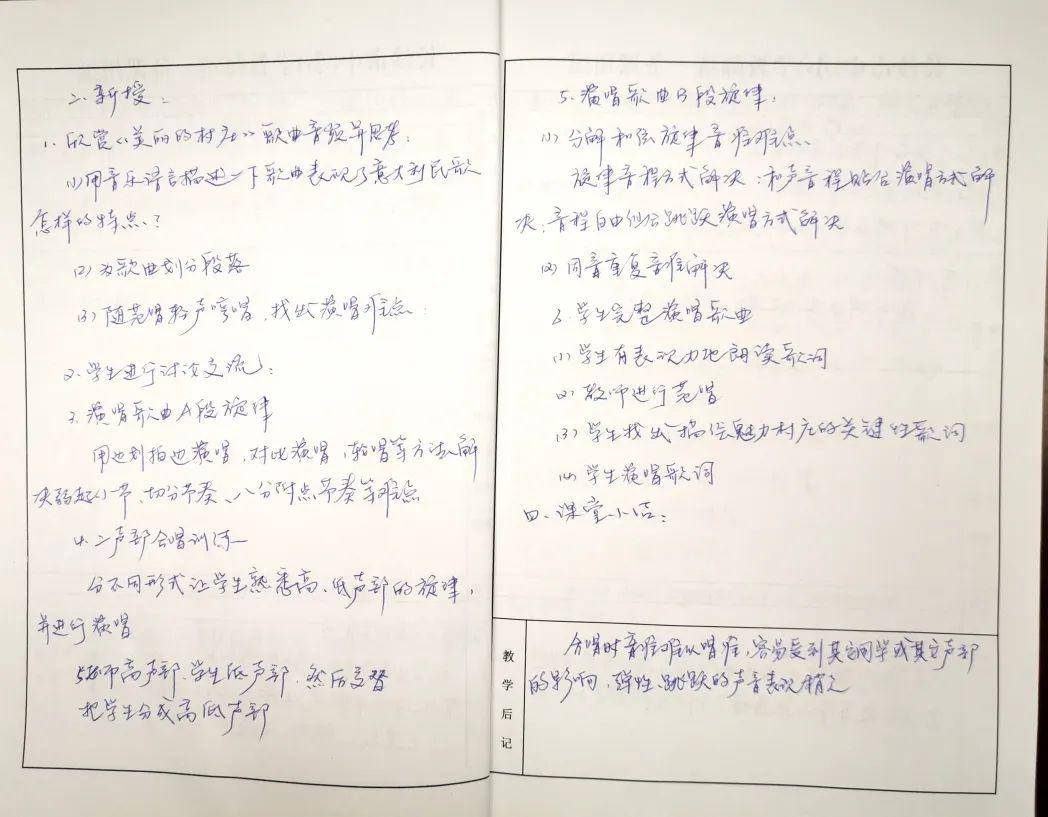 二、新授：
1、欣赏《美丽的村庄》歌曲音频并思考：
(1)用音乐语言描述一下歌曲表现了意大利民歌
怎样的特点？
(2)为歌曲划分段落
(3)随范唱轻声哼唱，找出演唱难点：
2、学生进行讨论交流：
3、演唱歌曲A段旋律
用边划拍边演唱，对比演唱，轮唱等方法解
决弱起小节、切分节奏、八分附点节奏等难点
4、二声部合唱训练
分不同形式让学生熟悉高、低声部的旋律，
并进行演唱
师高声部、学生低声部，然后交替
把学生分成高低声部
5、演唱歌曲B段旋律：
(1)分解和弦旋律音准难点
旋律音程方式解决：和声音程贴合演唱方式解
决、音程自由跳跃演唱方式解决
(2)同音重复音准解决
3、学生完整演唱歌曲
(1)学生有表现力地朗读歌词
(2)教师进行范唱
(3)学生找出描绘魅力村庄的关键性歌词
(4)学生演唱歌词
四、课堂小结：
教学后记
合唱时音准难以唱准，容易受到其它同学或其它声部
的影响，弹性、跳跃的声音表现稍欠